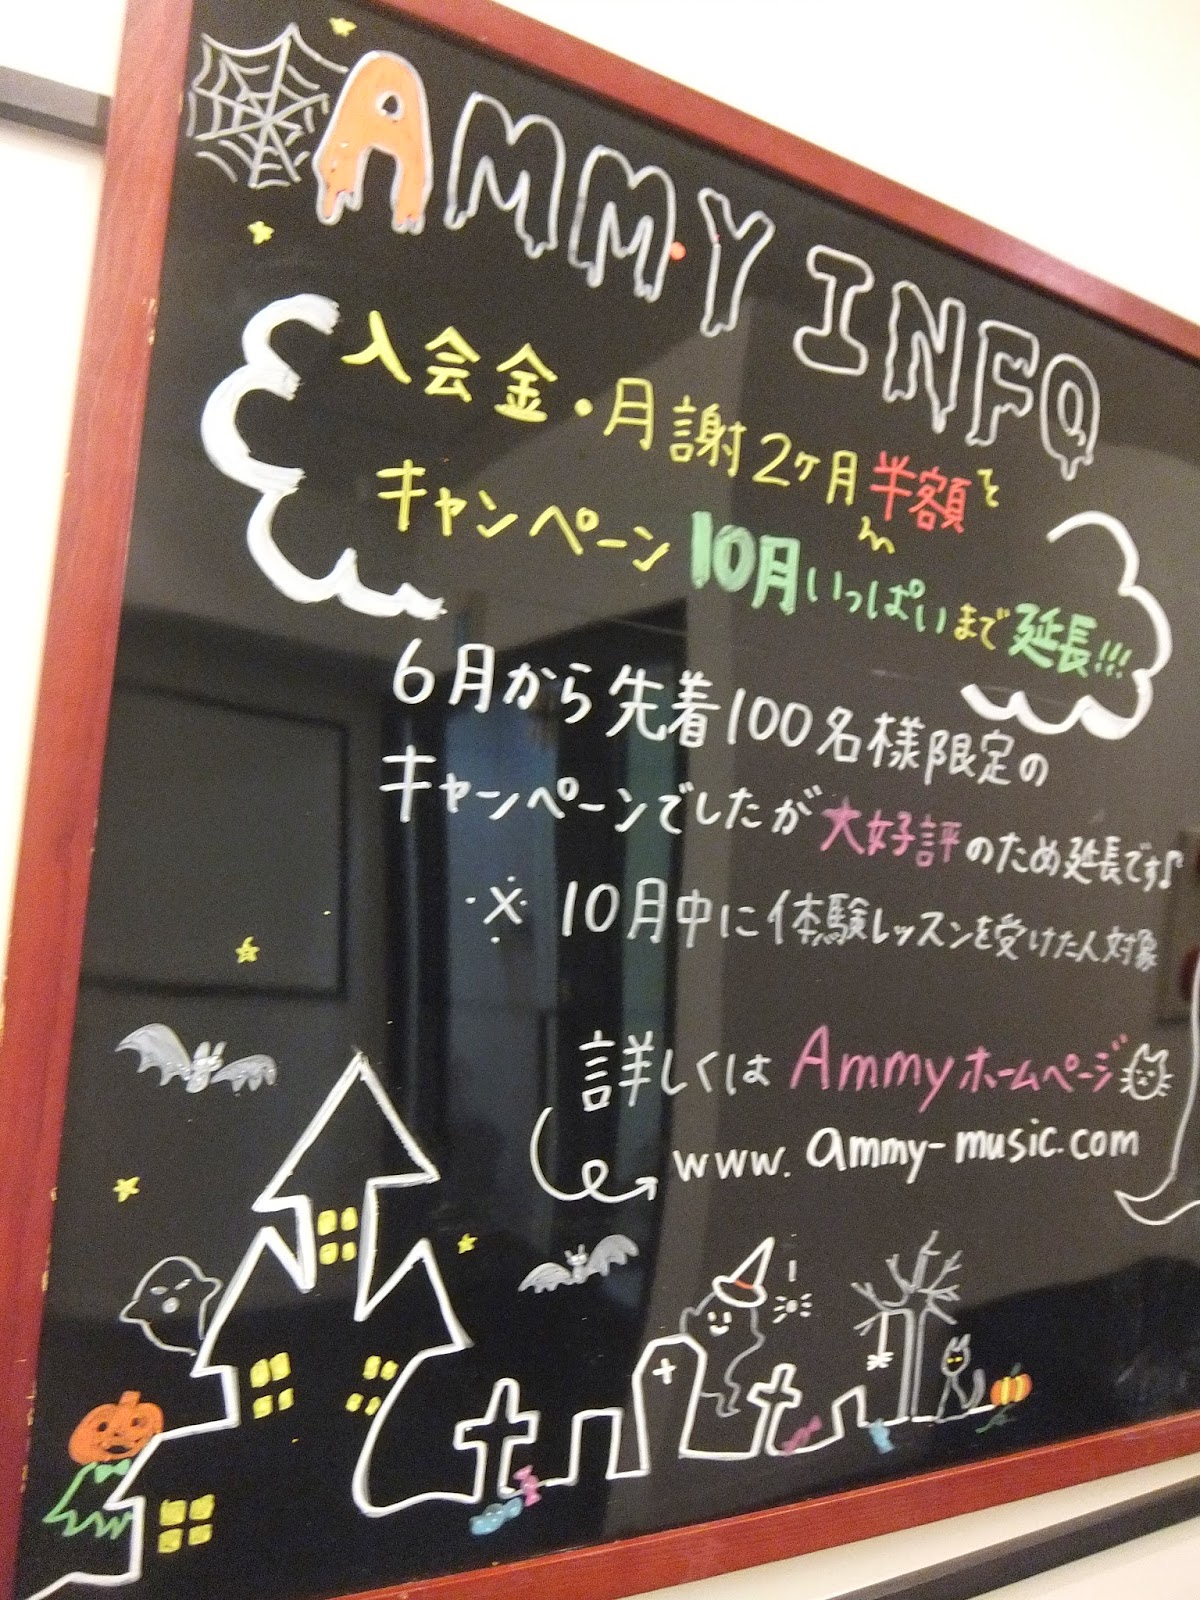 AMMY INFO
入会金・月謝2ヶ月半額を
キャンペーン10月いっぱいまで延長!!!
6月から先着100名様限定の
キャンペーンでしたが大好評のため延長です♪
※10月中に体験レッスンを受けた人対象
詳しくはAmmyホームページ
www.ammy-music.com